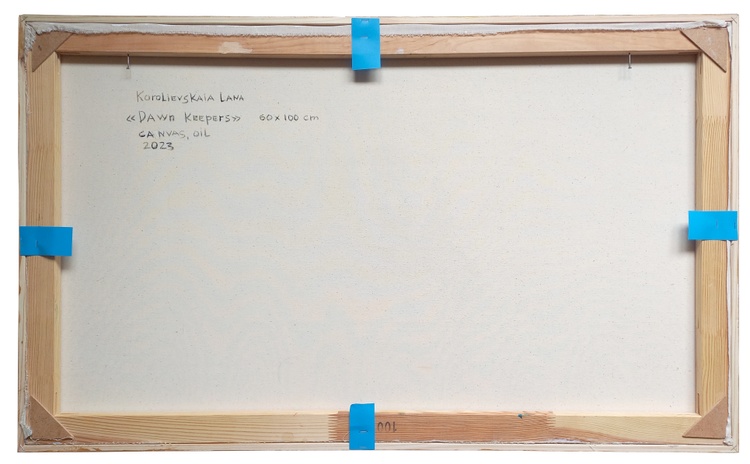 Korolievskaia Lana
«Dawn Keepers» 60x100 cm
CANVAS, OIL
2023
100